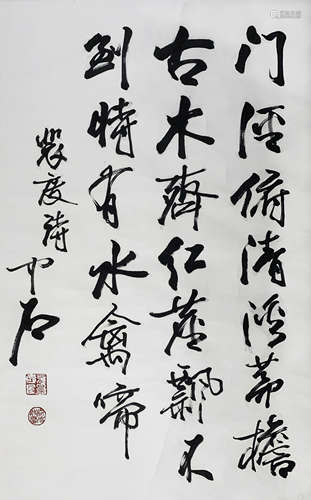 门径俯清溪茅檐
古木齊红塵飘不
到時有水禽啼
裴度诗
中石